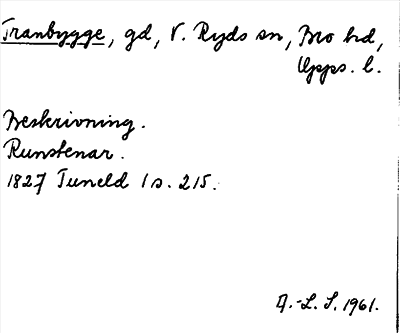 Tranbygge, gd, V. Ryds sn, Bro hd,
Upps. l.
Beskrivning.
Runstenar.
1827 Tuneld 1 s. 215.
A.-L. S. 1961.